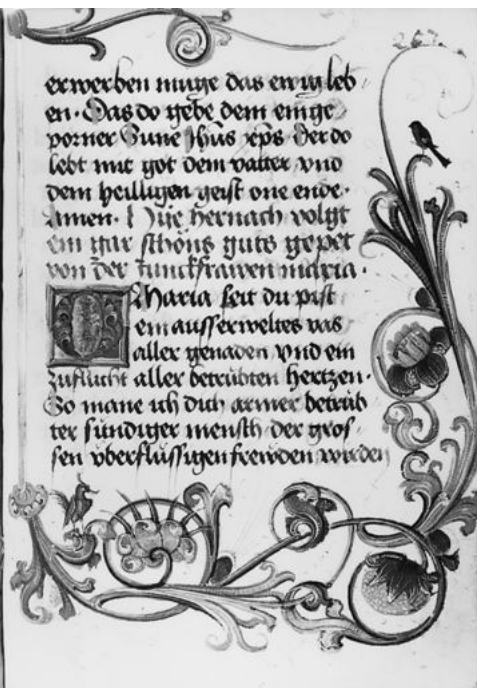 erwerben muge das ewig leb
en. Das do gebe dem einge
porner Sune Jhus xps. Der do
lebt mit got dem vatter vnd
dem heilligen geist one ende.
Amen. Hye hernach volgt
ein gar schons guts gepet
von der iunckfrawen maria.
O Maria seit du pist
ein ausserweltes vas
aller genaden vnd ein
zuflucht aller betrubten hertzen.
So mane ich dich armer betrub
ter sundiger mensch der gros
sen vberflussigen frewden